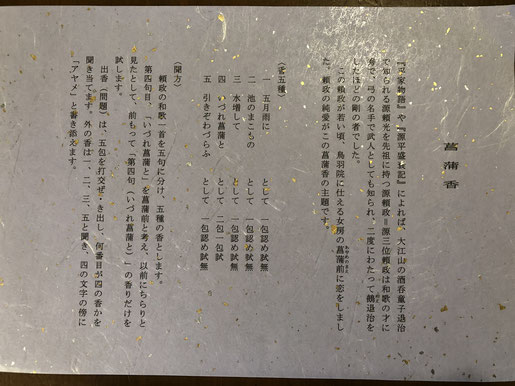 菖蒲香
『平家物語』や『源平盛衰記』によれば、大江山の酒呑童子退治
で知られる源頼光を先祖に持つ源頼政=源三位頼政は和歌の才に
秀で、弓の名手で武人としても知られ、二度にわたって鵺退治を
したほどの剛の者でした。
この頼政が若い頃、鳥羽院に仕える女房の菖蒲前に恋をしまし
た。頼政の純愛がこの菖蒲香の主題です。
〈香五種〉
一 五月雨に として 一包認め試無
二 池のまこもの として 一包認め試無
三 水増して として 一包認め試無
四 いづれ菖蒲と として 二包一包試
五 引きぞわづらふ として 一包認め試無
〈聞方〉
頼政の和歌一首を五句に分け、五種の香とします。
第四句目、「いづれ菖蒲と」を菖蒲前と考え、以前にちらりと
見たとして、前もって「第四句(いづれ菖蒲と)」の香りだけを
試します。
出香(問題)は、五包を打交ぜ・き出し、何番目が四の香かを
聞き当てます。外の香は一、二、三、五と聞き、四の文字の傍に
「アヤメ」と書き添えます。